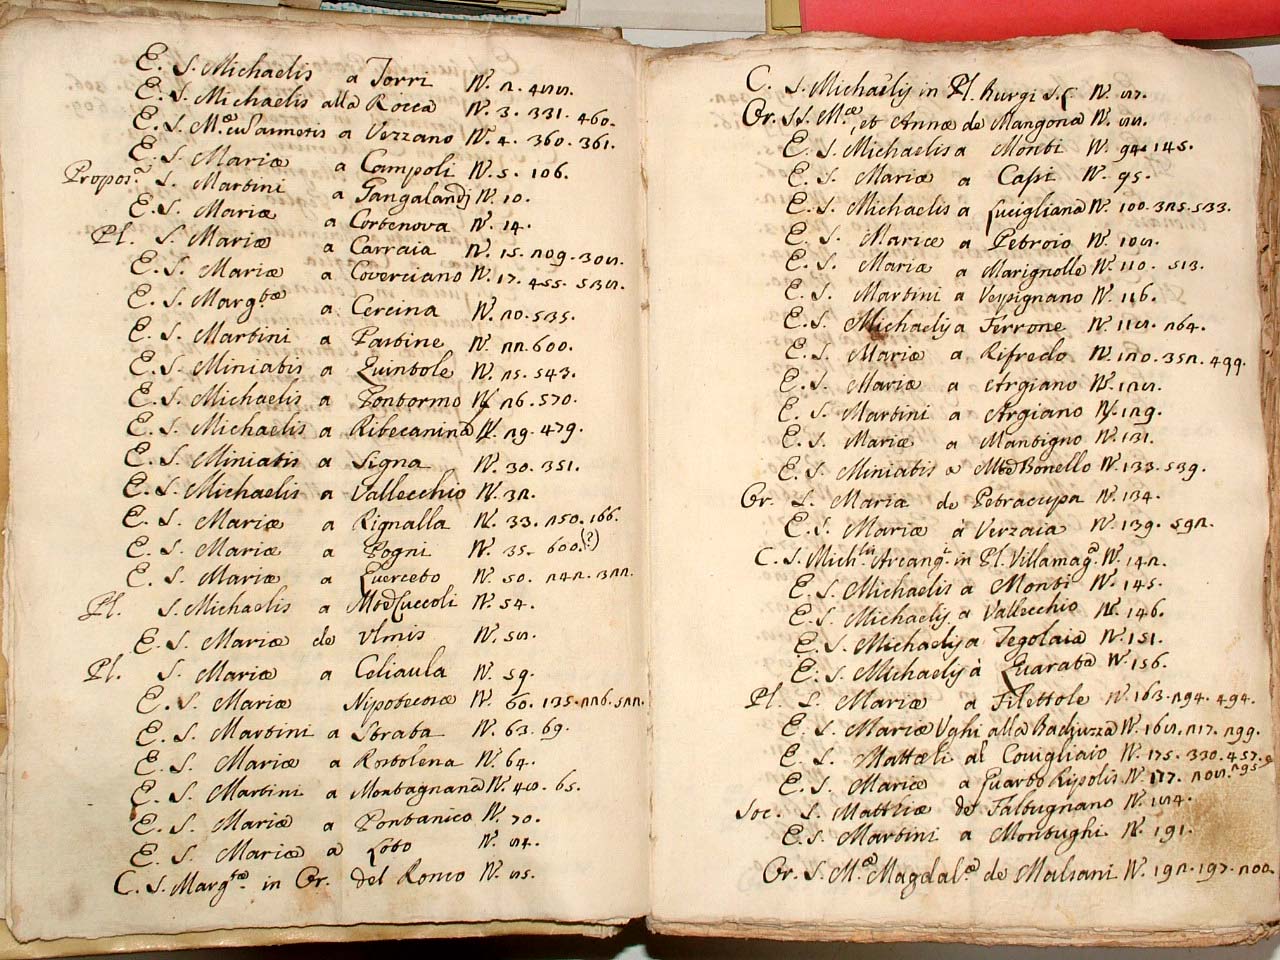 E. S. Michaelis a Torri N.
E. S. Michaelis alla Rocca N. 3. 331. 460.
E. a Vezzano N. 4. 360. 361.
E. S. Mariæ a Campoli N. 5. 106.
Propos.ª S. Martini a Gangalandj N. 10.
E. S. Mariæ a Cortenova N. 14.
Pl. S. Mariæ a Carraia N. 15.
E. S. Mariæ a Coverciano N. 17. 455.
E. S. Marg.tæ a Cercina N. 20. 535.
E. S. Martini a Partine N. 22. 600.
E. S. Miniatis a Quintole N. 25. 543.
E. S. Michaelis a Pontormo N. 26. 570.
E. S. Michaelis a Ribecanina N. 29. 479.
E. S. Miniatis a Signa N. 30. 351.
E. S. Michaelis a Vallecchio N. 32.
E. S. Mariæ a Rignalla N. 33. 250. 166.
E. S. Mariæ a Pogni N. 35. 600.(?)
E. S. Mariæ a Querceto N. 50. 242. 322.
Pl. S. Michaelis a N. 54.
E. S. Mariæ de Vlmis N. 58.
Pl. S. Mariæ a Celiaula N. 59.
E. S. Mariæ Nipotecoæ N. 60. 135. 226. 522.
E. S. Martini a Strada N. 63. 69.
E. S. Mariæ a Rostolena N. 64.
E. S. Martini a Montagnana N. 48. 65.
E. S. Mariæ a Pontanico N. 70.
E. S. Mariæ a Loto N. 84.
C. S. Marg.tæ in Or. del Ronco N. 85.
C. S. Michaelis in Pl. Burgi S. L. N. 87.
Or. SS. M.æ et Annæ de Mangona N. 88.
E. S. Michaelis a Monti N. 94. 145.
E. S. Mariæ a Cassi N. 95.
E. S. Michaelis a Lucigliana N. 100. 325. 533.
E. S. Mariæ a Petroio N. 108.
E. S. Mariæ a Marignolle N. 110. 513.
E. S. Martini a Vespignano N. 116.
E. S. Michaelis a Ferrone N. 118. 264.
E. S. Mariæ a Rifredo N. 120. 352. 499.
E. S. Mariæ a Argiano N. 128.
E. S. Martini a Argiano N. 129.
E. S. Mariæ a Mantigno N. 131.
E. S. Miniatis a Mte Bonello N. 133. 539.
Or. S. Maria de Petracupa N. 134.
E. S. Mariæ à Verzaia N. 139. 592.
C. S. Mich.lis Arcang.i in Pl. Villamag.ª N. 142.
E. S. Michaelis a Monti N. 145.
E. S. Michaelis a Vallecchio N. 146.
E. S. Michaelis a Tegolaia N. 151.
E. S. Michaelis à Quarata N. 156.
Pl. S. Mariæ a Filettole N. 163. 294. 494.
E. S. Mariæ Vghi alla Badiuzza N. 168. 217. 299.
E. S. Mattæi al Covigliaio N. 175. 330. 457.
E. S. Mariæ a Quarto Ripolis N. 177. 208. 295
Soc. S. Matthiæ de Faltugnano N. 184.
E. S. Martini a Montughi N. 191.
Or. S. M.æ Magdal.æ de Malsani N. 192. 197. 200.